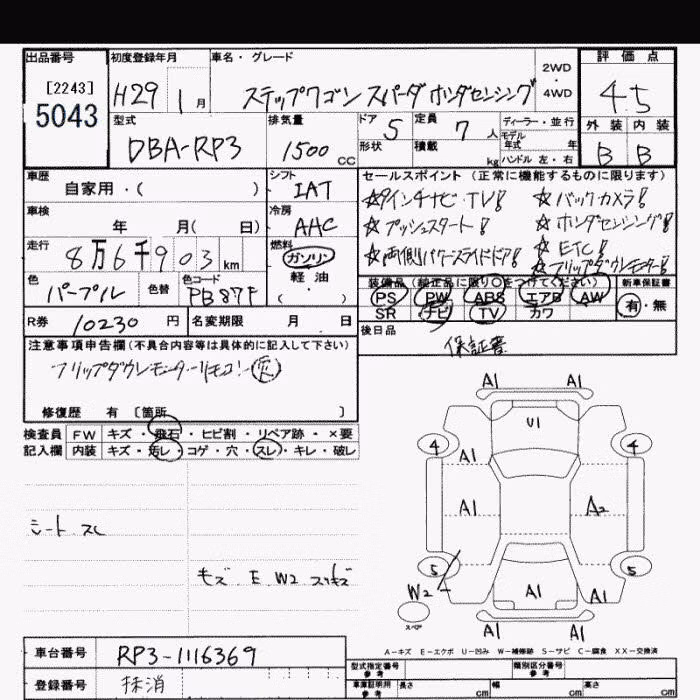 出品番号 初度登録年月 車名・グレード 2WD・4WD 評価点
[2243]
5043
H29 1月 ステップワゴン スパーダ ホンダセンシング 4.5
型式 排気量 ドア 5 定員 7人 ディーラー・並行 外装 内装
DBA-RP3 1500cc 形状 積載 kg モデル年式 年 ハンドル 左・右 B B
車歴 シフト セールスポイント(正常に機能するものに限ります)
自家用・( ) IAT
☆9インチナビ・TV! ☆バックカメラ!
車検 冷房 ☆プッシュスタート! ☆ホンダセンシング!
年 月( 日) AAC
☆両側パワースライドドア! ☆ETC!
走行 8万6千903km 燃料 ガソリン 軽油 ( )
☆フリップダウンモニター!
色 パープル 色替 色コード PB87P
装備品(純正品に限り○をつけてください) 新車保証書
PS PW ABS エアB AW 有・無
SR ナビ TV カワ
R券 10230円 名変期限 月 日 後日品
保証書
注意事項申告欄(不具合内容等は具体的に記入して下さい)
フリップダウンモニターリモコン欠
修復歴 有 〔箇所 〕
検査員 FW キズ・飛石・ヒビ割・リペア跡・×要
記入欄 内装 キズ・汚レ・コゲ・穴・スレ・キレ・破レ
シート スレ
キズ E W2 スリキズ
A1 A1
U1
4 4
A1
A1 A2
5 5
W2
A1 A1
スペア
A1 A1
A-キズ E-エクボ U-凹み W-補修跡 S-サビ C-腐食 XX-交換済
車台番号 RP3-1116369
型式指定番号 参考 類別区分番号 参考
登録番号 抹消
車庫証明用 参考 長さ cm 幅 cm 高さ cm